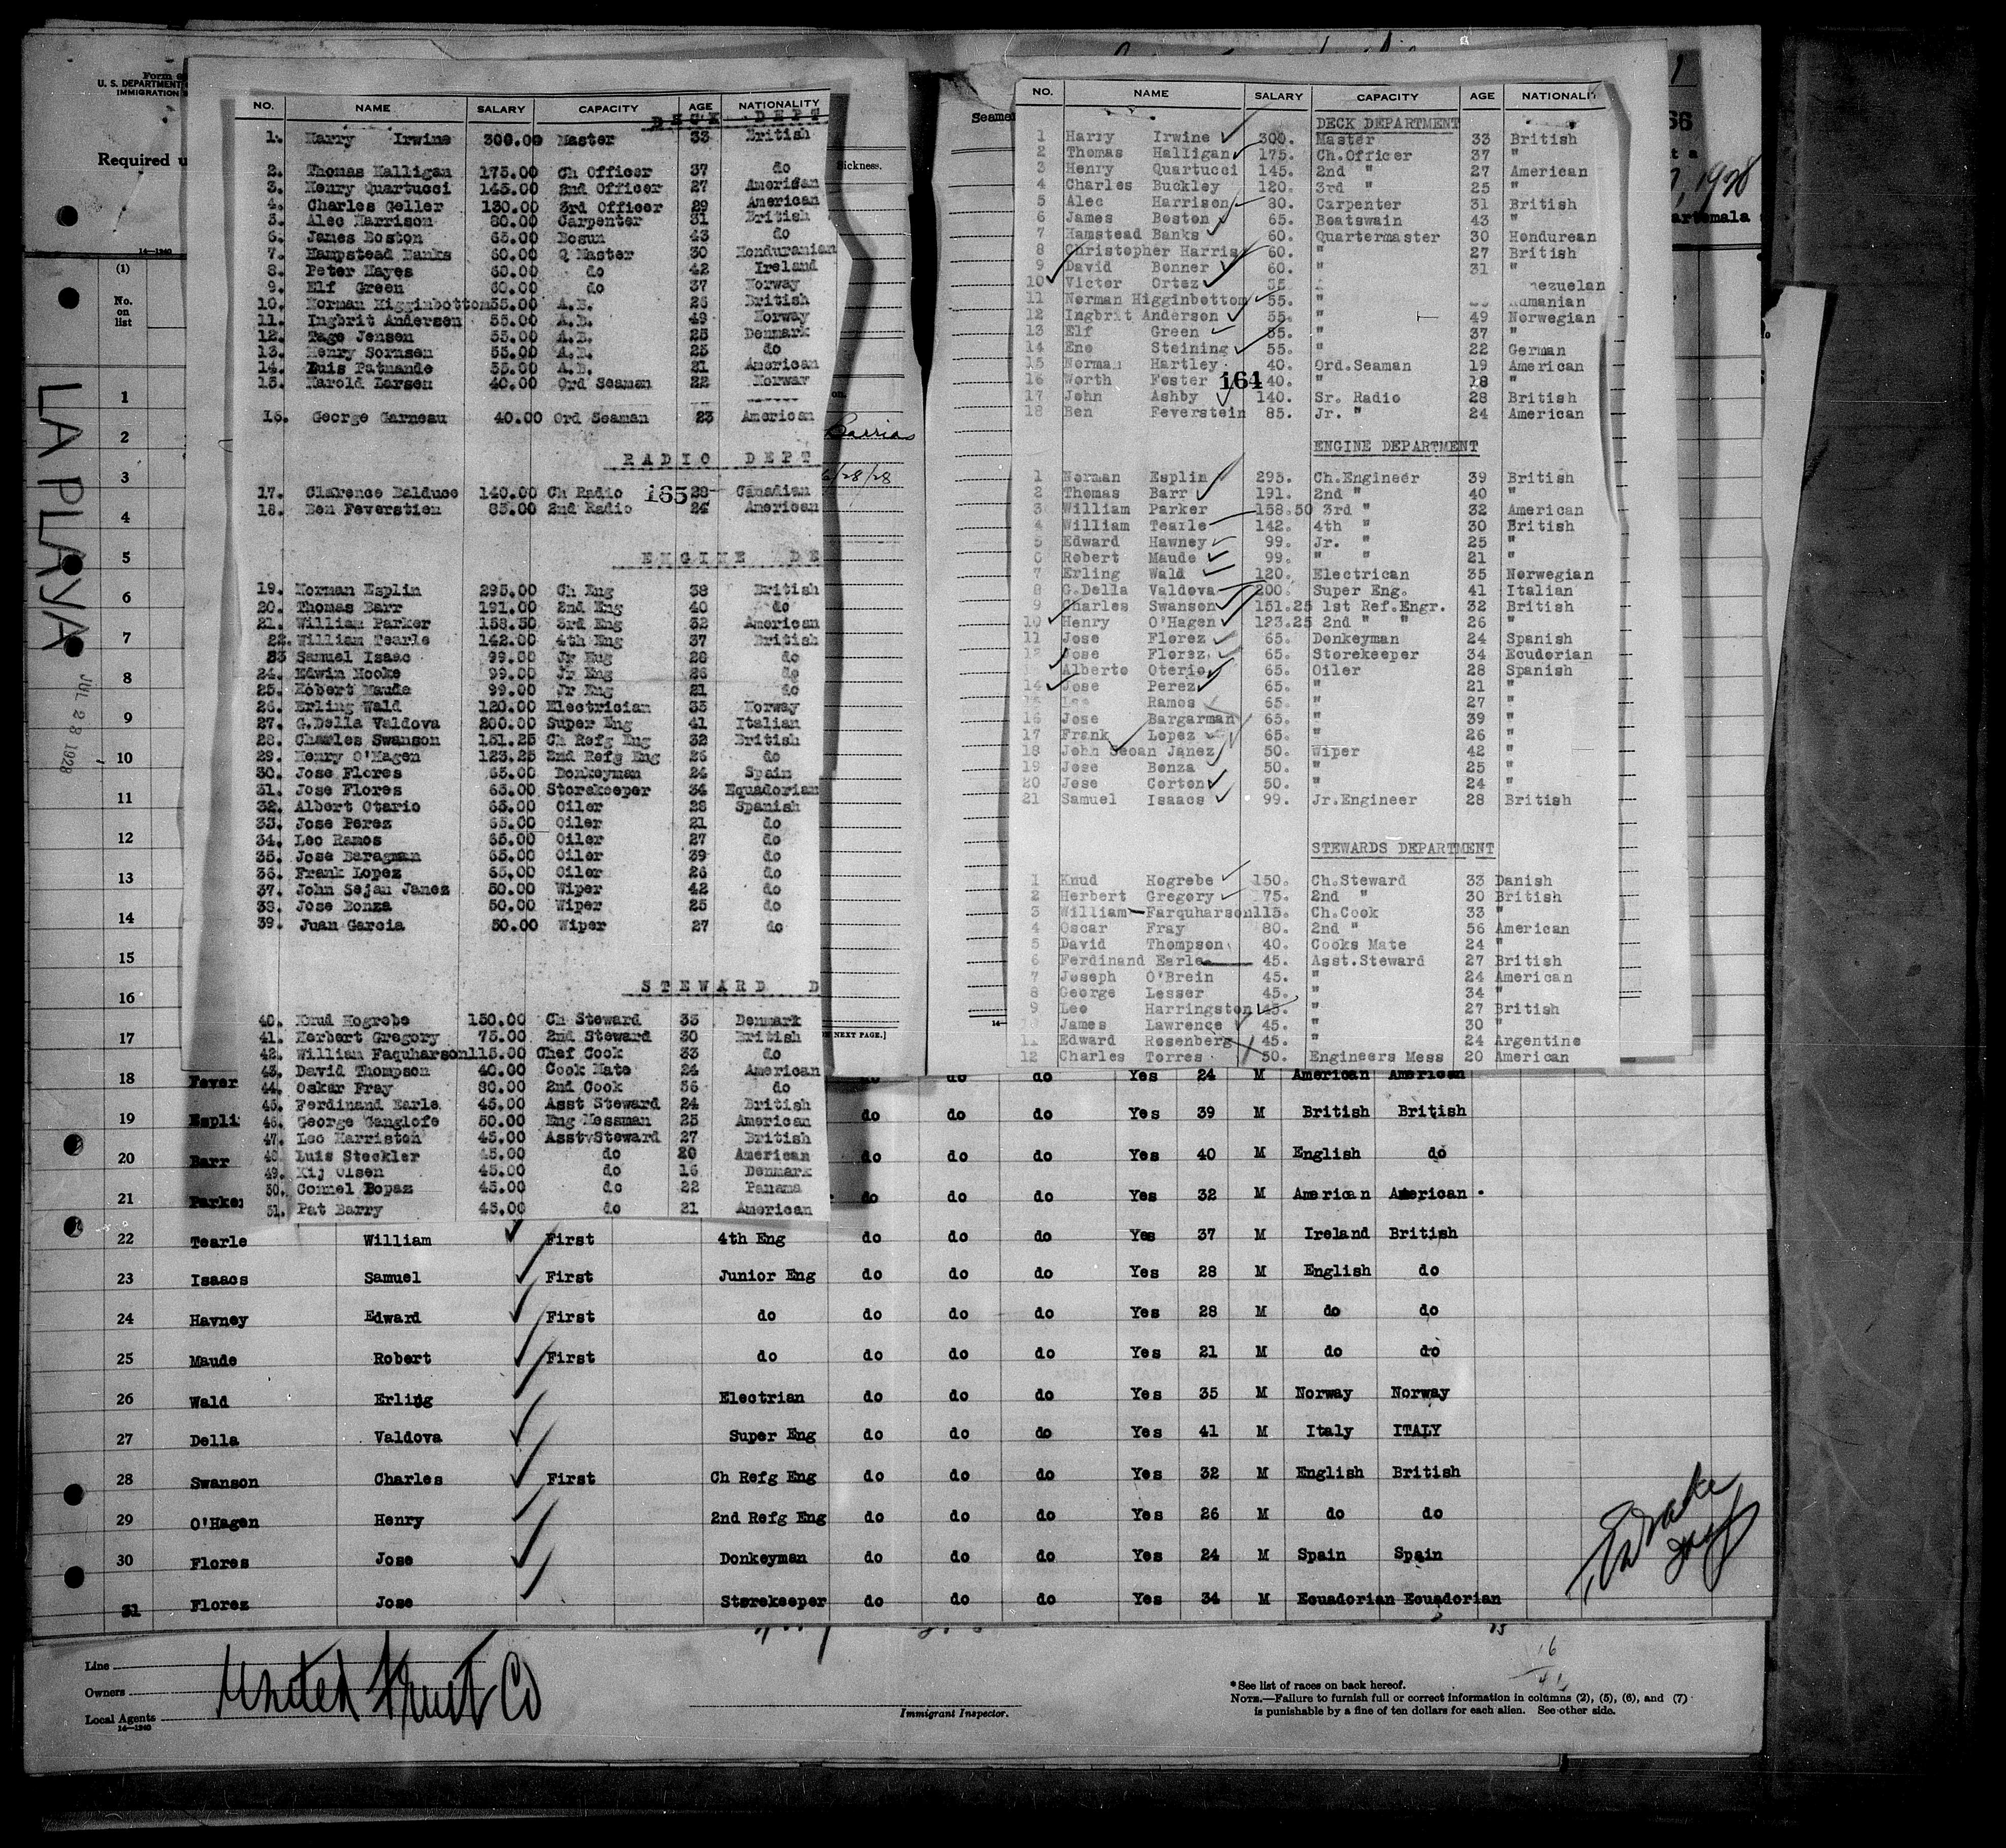 Form
U. S. DEPARTMENT
IMMIGRATION
Required
14—1240
(1)
No.
on
list
LA PLAYA
JUL 28 1928
NO. NAME SALARY CAPACITY AGE NATIONALITY
DECK DEPT
1. Harry Irwine 300.00 Master 33 British
2. Thomas Halligan 175.00 Ch Officer 37 do
3. Henry Quartucci 145.00 2nd Officer 27 American
4. Charles Geller 130.00 3rd Officer 29 American
5. Alec Harrison 80.00 Carpenter 31 British
6. James Boston 65.00 Bosun 43 do
7. Hampstead Banks 60.00 Q Master 30 Honduranian
8. Peter Hayes 60.00 do 42 Ireland
9. Elf Green 60.00 do 37 Norway
10. Norman Higginbottom 55.00 A.B. 26 British
11. Ingbrit Andersen 55.00 A.B. 49 Norway
12. Tage Jensen 55.00 A.B. 25 Denmark
13. Henry Sornsen 55.00 A.B. 25 do
14. Luis Patnande 55.00 A.B. 21 American
15. Harold Larsen 40.00 Ord Seaman 22 Norway
16. George Garneau 40.00 Ord Seaman 23 American
RADIO DEPT
17. Clarence Balduce 140.00 Ch Radio 165 28 Canadian
18. Ben Feverstien 85.00 2nd Radio 24 American
ENGINE DE
19. Norman Esplin 295.00 Ch Eng 38 British
20. Thomas Barr 191.00 2nd Eng 40 do
21. William Parker 158.50 3rd Eng 32 American
22. William Tearle 142.00 4th Eng 37 British
23 Samuel Isaac 99.00 Jr Eng 28 do
24. Edwin Hooke 99.00 Jr Eng 26 do
25. Robert Maude 99.00 Jr Eng 21 do
26. Erling Wald 120.00 Electrician 35 Norway
27. G.Della Valdova 200.00 Super Eng 41 Italian
28. Charles Swanson 151.25 Ch Refg Eng 32 British
29. Henry O'Hagen 123.25 2nd Refg Eng 26 do
30. Jose Flores 65.00 Donkeyman 24 Spain
31. Jose Flores 65.00 Storekeeper 34 Equadorian
32. Albert Otario 65.00 Oiler 28 Spanish
33. Jose Perez 65.00 Oiler 21 do
34. Leo Ramos 65.00 Oiler 27 do
35. Jose Baragman 65.00 Oiler 39 do
36. Frank Lopez 65.00 Oiler 26 do
37. John Sejan Janez 50.00 Wiper 42 do
38. Jose Bonza 50.00 Wiper 25 do
39. Juan Garcia 50.00 Wiper 27 do
STEWARD D
40. Knud Hogrebe 150.00 Ch Steward 33 Denmark
41. Herbert Gregory 75.00 2nd Steward 30 British
42. William Faquharson 115.00 Chef Cook 33 do
43. David Thompson 40.00 Cook Mate 24 American
44. Oskar Fray 80.00 2nd Cook 56 do
45. Ferdinand Earle 45.00 Asst Steward 24 British
46. George Ganglofe 50.00 Eng Messman 25 American
47. Leo Harriston 45.00 AsstvSteward 27 British
48. Luis Steckler 45.00 do 20 American
49. Kij Olsen 45.00 do 16 Denmark
50. Connel Bopaz 45.00 do 22 Panama
51. Pat Barry 45.00 do 21 American
Sickness.
on.
Barrias
6/28/28
NEXT PAGE.]
Seamen
NO. NAME SALARY CAPACITY AGE NATIONALI
DECK DEPARTMENT
1 Harry Irwine 300. Master 33 British
2 Thomas Halligan 175. Ch.Officer 37 "
3 Henry Quartucci 145. 2nd " 27 American
4 Charles Buckley 120. 3rd " 25 "
5 Alec Harrison 80. Carpenter 31 British
6 James Boston 65. Boatswain 43 "
7 Hamstead Banks 60. Quartermaster 30 Hondurean
8 Christopher Harris 60. " 27 British
9 David Bonner 60. " 31 "
10 Victor Ortez 55. nezuelan
11 Norman Higginbottom 55. " umanian
12 Ingbrit Anderson 55. " 49 Norwegian
13 Elf Green 55. " 37 "
14 Ene Steining 55. " 22 German
15 Norman Hartley 40. Ord.Seaman 19 American
16 Worth Foster 164 40. " 18 "
17 John Ashby 140. Sr. Radio 28 British
18 Ben Feverstein 85. Jr. " 24 American
ENGINE DEPARTMENT
1 Norman Esplin 295. Ch.Engineer 39 British
2 Thomas Barr 191. 2nd " 40 "
3 William Parker 158.50 3rd " 32 American
4 William Tearle 142. 4th " 30 British
5 Edward Hawney 99. Jr. " 25 "
6 Robert Maude 99. " " 21 "
7 Erling Wald 120. Electrican 35 Norwegian
8 G.Della Valdova 200. Super Eng. 41 Italian
9 Charles Swanson 151.25 1st Ref.Engr. 32 British
10 Henry O'Hagen 123.25 2nd " " 26 "
11 Jose Florez 65. Donkeyman 24 Spanish
12 Jose Florez 65. Storekeeper 34 Ecudorian
Alberto Oterio 65. Oiler 28 Spanish
14 Jose Perez 65. " 21 "
15 Leo Ramos 65. " 27 "
16 Jose Bargarman 65. " 39 "
17 Frank Lopez 65. " 26 "
18 John Seoan Janez 50. Wiper 42 "
19 Jose Bonza 50. " 25 "
20 Jose Corton 50. " 24 "
21 Samuel Isaacs 99. Jr.Engineer 28 British
STEWARDS DEPARTMENT
1 Knud Hogrebe 150. Ch.Steward 33 Danish
2 Herbert Gregory 75. 2nd " 30 British
3 William Farquharson 115. Ch.Cook 33 "
4 Oscar Fray 80. 2nd " 56 American
5 David Thompson 40. Cooks Mate 24 "
6 Ferdinand Earle 45. Asst.Steward 27 British
7 Joseph O'Brein 45. " 24 American
8 George Lesser 45. " 34 "
9 Leo Harringston 45. " 27 British
James Lawrence 45. " 30 "
11 Edward Rosenberg 45. " 24 Argentine
12 Charles Torres 50. Engineers Mess 20 American
66
1928
1
2
3
4
5
6
7
8
9
10
11
12
13
14
15
16
17
18 Fever do do do Yes 24 M American American
19 Espli do do do Yes 39 M British British
20 Barr do do do Yes 40 M English do
21 Parke do do do Yes 32 M American American
22 Tearle William First 4th Eng do do do Yes 37 M Ireland British
23 Isaacs Samuel First Junior Eng do do do Yes 28 M English do
24 Havney Edward First do do do do Yes 28 M do do
25 Maude Robert First do do do do Yes 21 M do do
26 Wald Erling Electrian do do do Yes 35 M Norway Norway
27 Della Valdova Super Eng do do do Yes 41 M Italy ITALY
28 Swanson Charles First Ch Refg Eng do do do Yes 32 M English British
29 O'Hagen Henry 2nd Refg Eng do do do Yes 26 M do do
30 Flores Jose Donkeyman do do do Yes 24 M Spain Spain
31 Florez Jose Storekeeper do do do Yes 34 M Ecuadorian Ecuadorian
Line
Owners United Fruit Co
Local Agents
14—1240
Immigrant Inspector.
* See list of races on back hereof.
NOTE.—Failure to furnish full or correct information in columns (2), (5), (6), and (7)
is punishable by a fine of ten dollars for each alien. See other side.